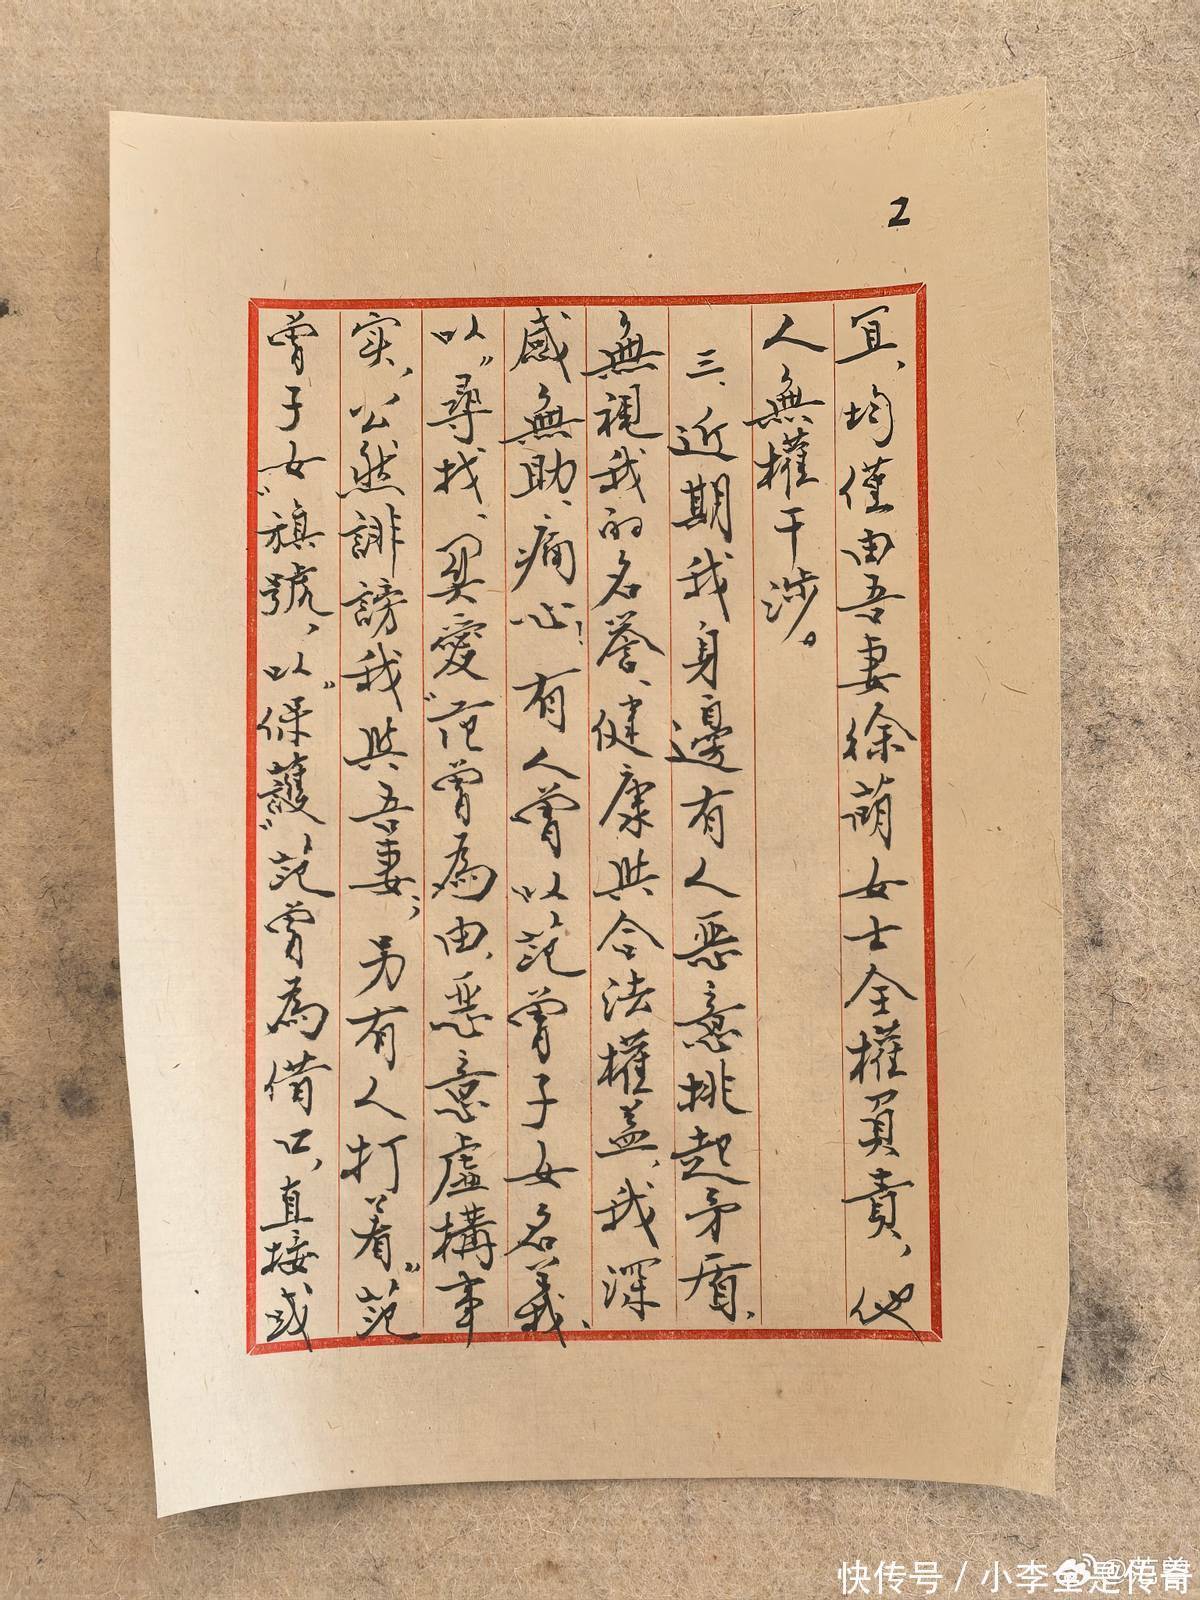 2
宜、均僅由吾妻徐萌女士全權負責，他
人無權干涉。
三、近期我身邊有人惡意挑起矛盾、
無視我的名譽、健康與合法權益，我深
感無助、痛心！有人曾以范曾子女名義、
以“尋找、關愛”范曾為由，惡意虛構事
实，公然誹謗我與吾妻；另有人打着“范
曾子女”旗號，以“保護”范曾為借口，直接或
快传号 / 小李童是传奇